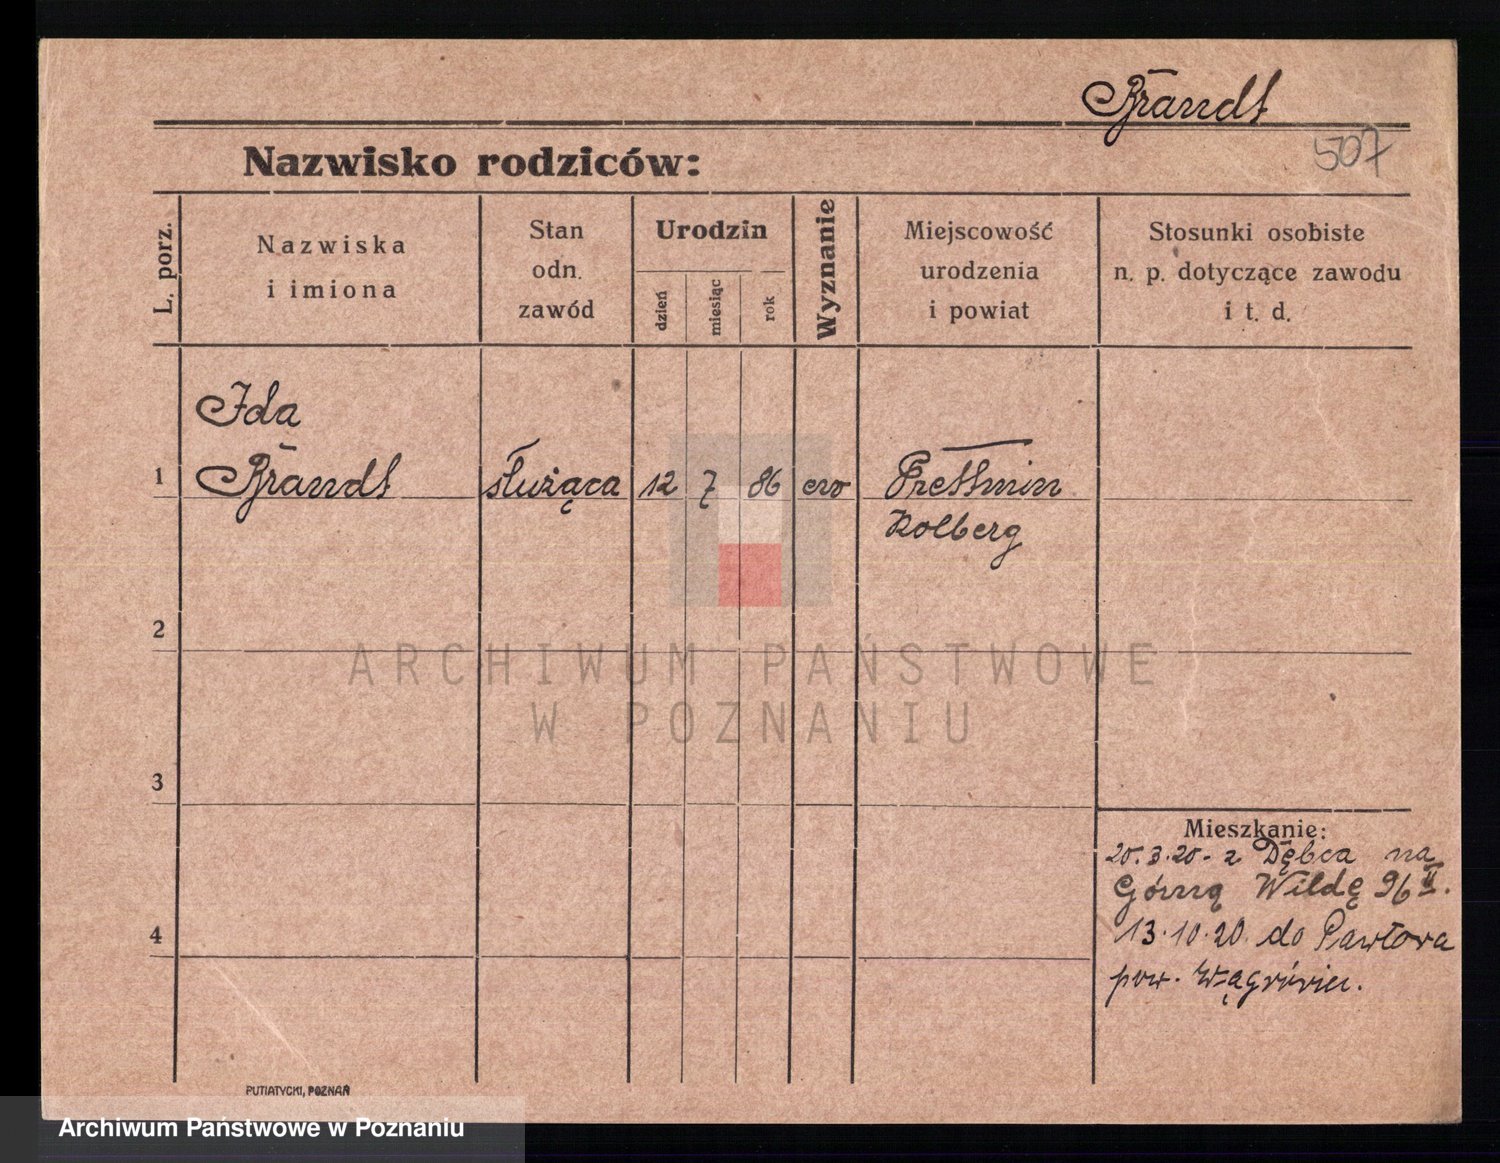 Brandt
507
Nazwisko rodziców:
L. porz.
Nazwiska
i imiona
Stan
odn.
zawód
Urodzin
dzień
miesiąc
rok
Wyznanie
Miejscowość
urodzenia
i powiat
Stosunki osobiste
n. p. dotyczące zawodu
i t. d.
Ida
1 Brandt służąca 12 7 86 ew Prettmin
Kolberg
2
ARCHIWUM PAŃSTWOWE
W POZNANIU
3
Mieszkanie:
20.3.20 - z Dębca na
Górną Wildę 96 II.
4
13.10.20. do Pawłowa
pow. Wągrówiec.
PUTIATYCKI, POZNAŃ
Archiwum Państwowe w Poznaniu